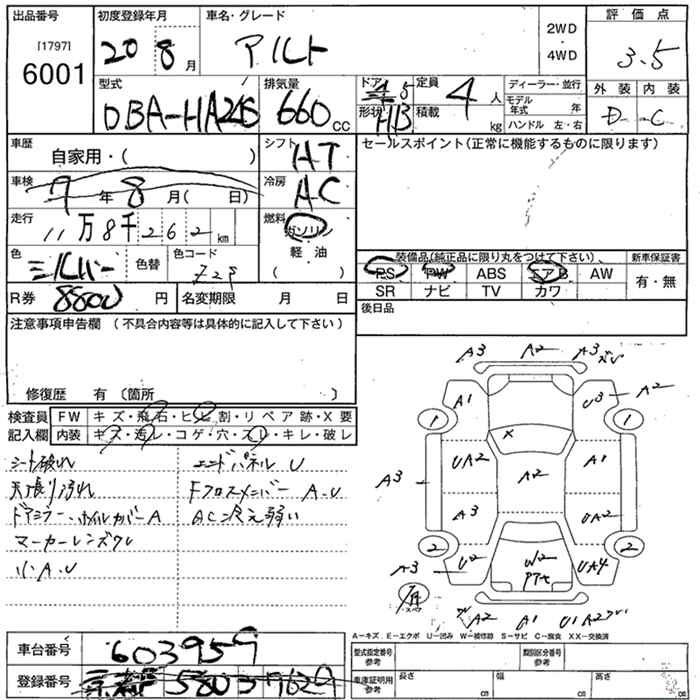 出品番号
[1797]
6001
初度登録年月
20 8月
車名・グレード
アルト
2WD
4WD
評価点
3.5
外装 内装
D C
型式
DBA-HA24S
排気量
660 cc
ドア 5
形状 HB
定員 4 人
積載 kg
ディーラー・並行
モデル年式 年
ハンドル 左・右
車歴
自家用・( )
シフト
AT
セールスポイント(正常に機能するものに限ります)
車検
9年 8月( 日)
冷房
AC
走行
11万8千262km
燃料
ガソリン
軽油
( )
色
シルバー
色替
色コード
Z2S
装備品(純正品に限り丸をつけて下さい)、
PS PW ABS エアB AW
SR ナビ TV カワ
新車保証書
有・無
R券 8800 円
名変期限 月 日
後日品
注意事項申告欄 (不具合内容等は具体的に記入して下さい)
修復歴 有 〔箇所 〕
検査員
記入欄
FW キズ・飛石・ヒビ割・リペア跡・X要
内装 キズ・汚レ・コゲ・穴・スレ・キレ・破レ
シート破れ
天張り汚れ
ドアミラー、ホイルカバーA
マーカーレンズワレ
小A.U
エンドパネルU
FクロスメンバーA.U
AC冷え弱い
A3 A2 A3
A1 U3 A2
1 1
X
UA2 A2 A1
A3
A3 UA2
2 2
A3 U2 W2 UA4
A2 A1 U1 A2
A-キズ E-エクボ U-凹み W-補修跡 S-サビ C-腐食 XX-交換済
車台番号 603959
登録番号 580 39629
型式指定番号
参考
類別区分番号
参考
車庫証明用
参考
長さ cm
幅 cm
高さ cm